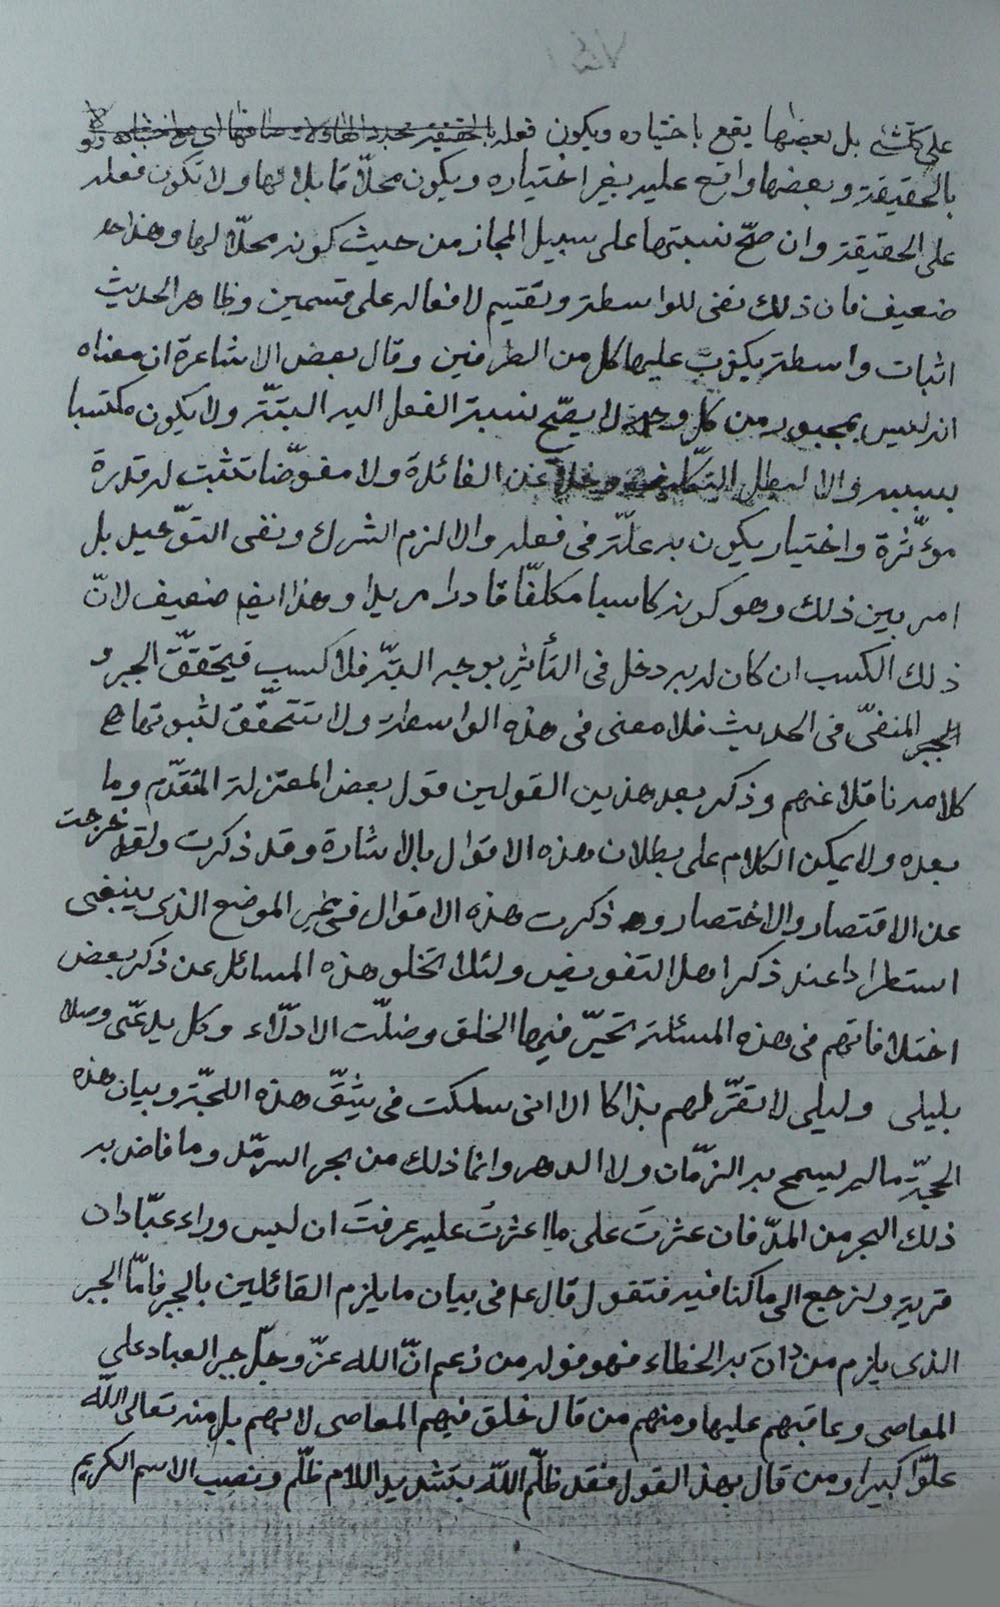 على كل شئ بل بعضها يقع باختياره ويكون فعله
بالحقيقة وبعضها واقع عليه بغير اختياره ويكون محلّا قابلا لها ولا تكون فعله
على الحقيقة وان صحّ نسبتها على سبيل المجاز من حيث كونه محلّا لها وهذا
ضعيف فان ذلك نفى للواسطة وتقسيم لافعاله على قسمين وظاهر الحديث
اثبات واسطة عليها كل من الطرفين وقال بعض الاشاعرة ان معناه
انه ليس بمجبور من كل وجه لا يصحّ نسبة الفعل اليه البتّة ولا يكون مكتسبا
بسببه والا لبطل التكليف وخلا عن الفائدة ولا مفوّضا تثبت له قدرة
مؤثّرة واختيار يكون به علّة فى فعله والا لزم الشرك ونفى التوّحيد بل
امر بين ذلك وهو كونه كاسبا مكلفّا قادرا مريدا وهذا ايضا ضعيف لانّ
ذلك الكسب ان كان له به دخل فى التأثير بوجه البتّة فلا كسب فيتحقّق الجبر و
الجبر المنفىّ فى الحديث فلا معنى فى هذه الواسطة ولا تتحقّق لثبوتها ه
كلامه ناقلا عنهم وذكر بعد هذين القولين قول بعض المعتزلة المتقدّم وما
بعده ولا يمكن الكلام على بطلان هذه الاقوال بالاشارة وقد ذكرت ولقد خرجت
عن الاقتصار والاختصار و ذكرت هذه الاقوال فى غير الموضع الذى ينبغى
استطرادا عند ذكر اهل التفويض ولئلا تخلو هذه المسائل عن ذكر بعض
اختلافاتهم فى هذه المسئلة تحيّر فيها الخلق وضلّت الادلّاء وكل يدعّى وصلا
بليلى وليلى لا تقرّ لهم بذاكا الا انى سلكت فى شقّ هذه اللجّة وبيان هذه
الحجّة ما لم يسمح به الزمّان ولا الدهر وانما ذلك من بحر السرمّد وما فاض به
ذلك البحر من المدّ فان عثرتَ على ما اعثرتُ عليه عرفتَ ان ليس وراء عبّادان
قرية ولنرجع الى ما كنا فيه فنقول قال ع فى بيان ما يلزم القائلين بالجبر فامّا الجبر
الذى يلزم من دانَ به الخطاء فهو قول من زعم انّ الله عزّ وجلّ جبر العباد على
المعاصى وعاقبهم عليها ومنهم من قال خلق فيهم المعاصى لا بهم بل منه تعالى الله
علوّا كبيرا ومن قال بهذا القول فقد ظلّم اللّه بتشديد اللام ظلّم ونصب الاسم الكريم